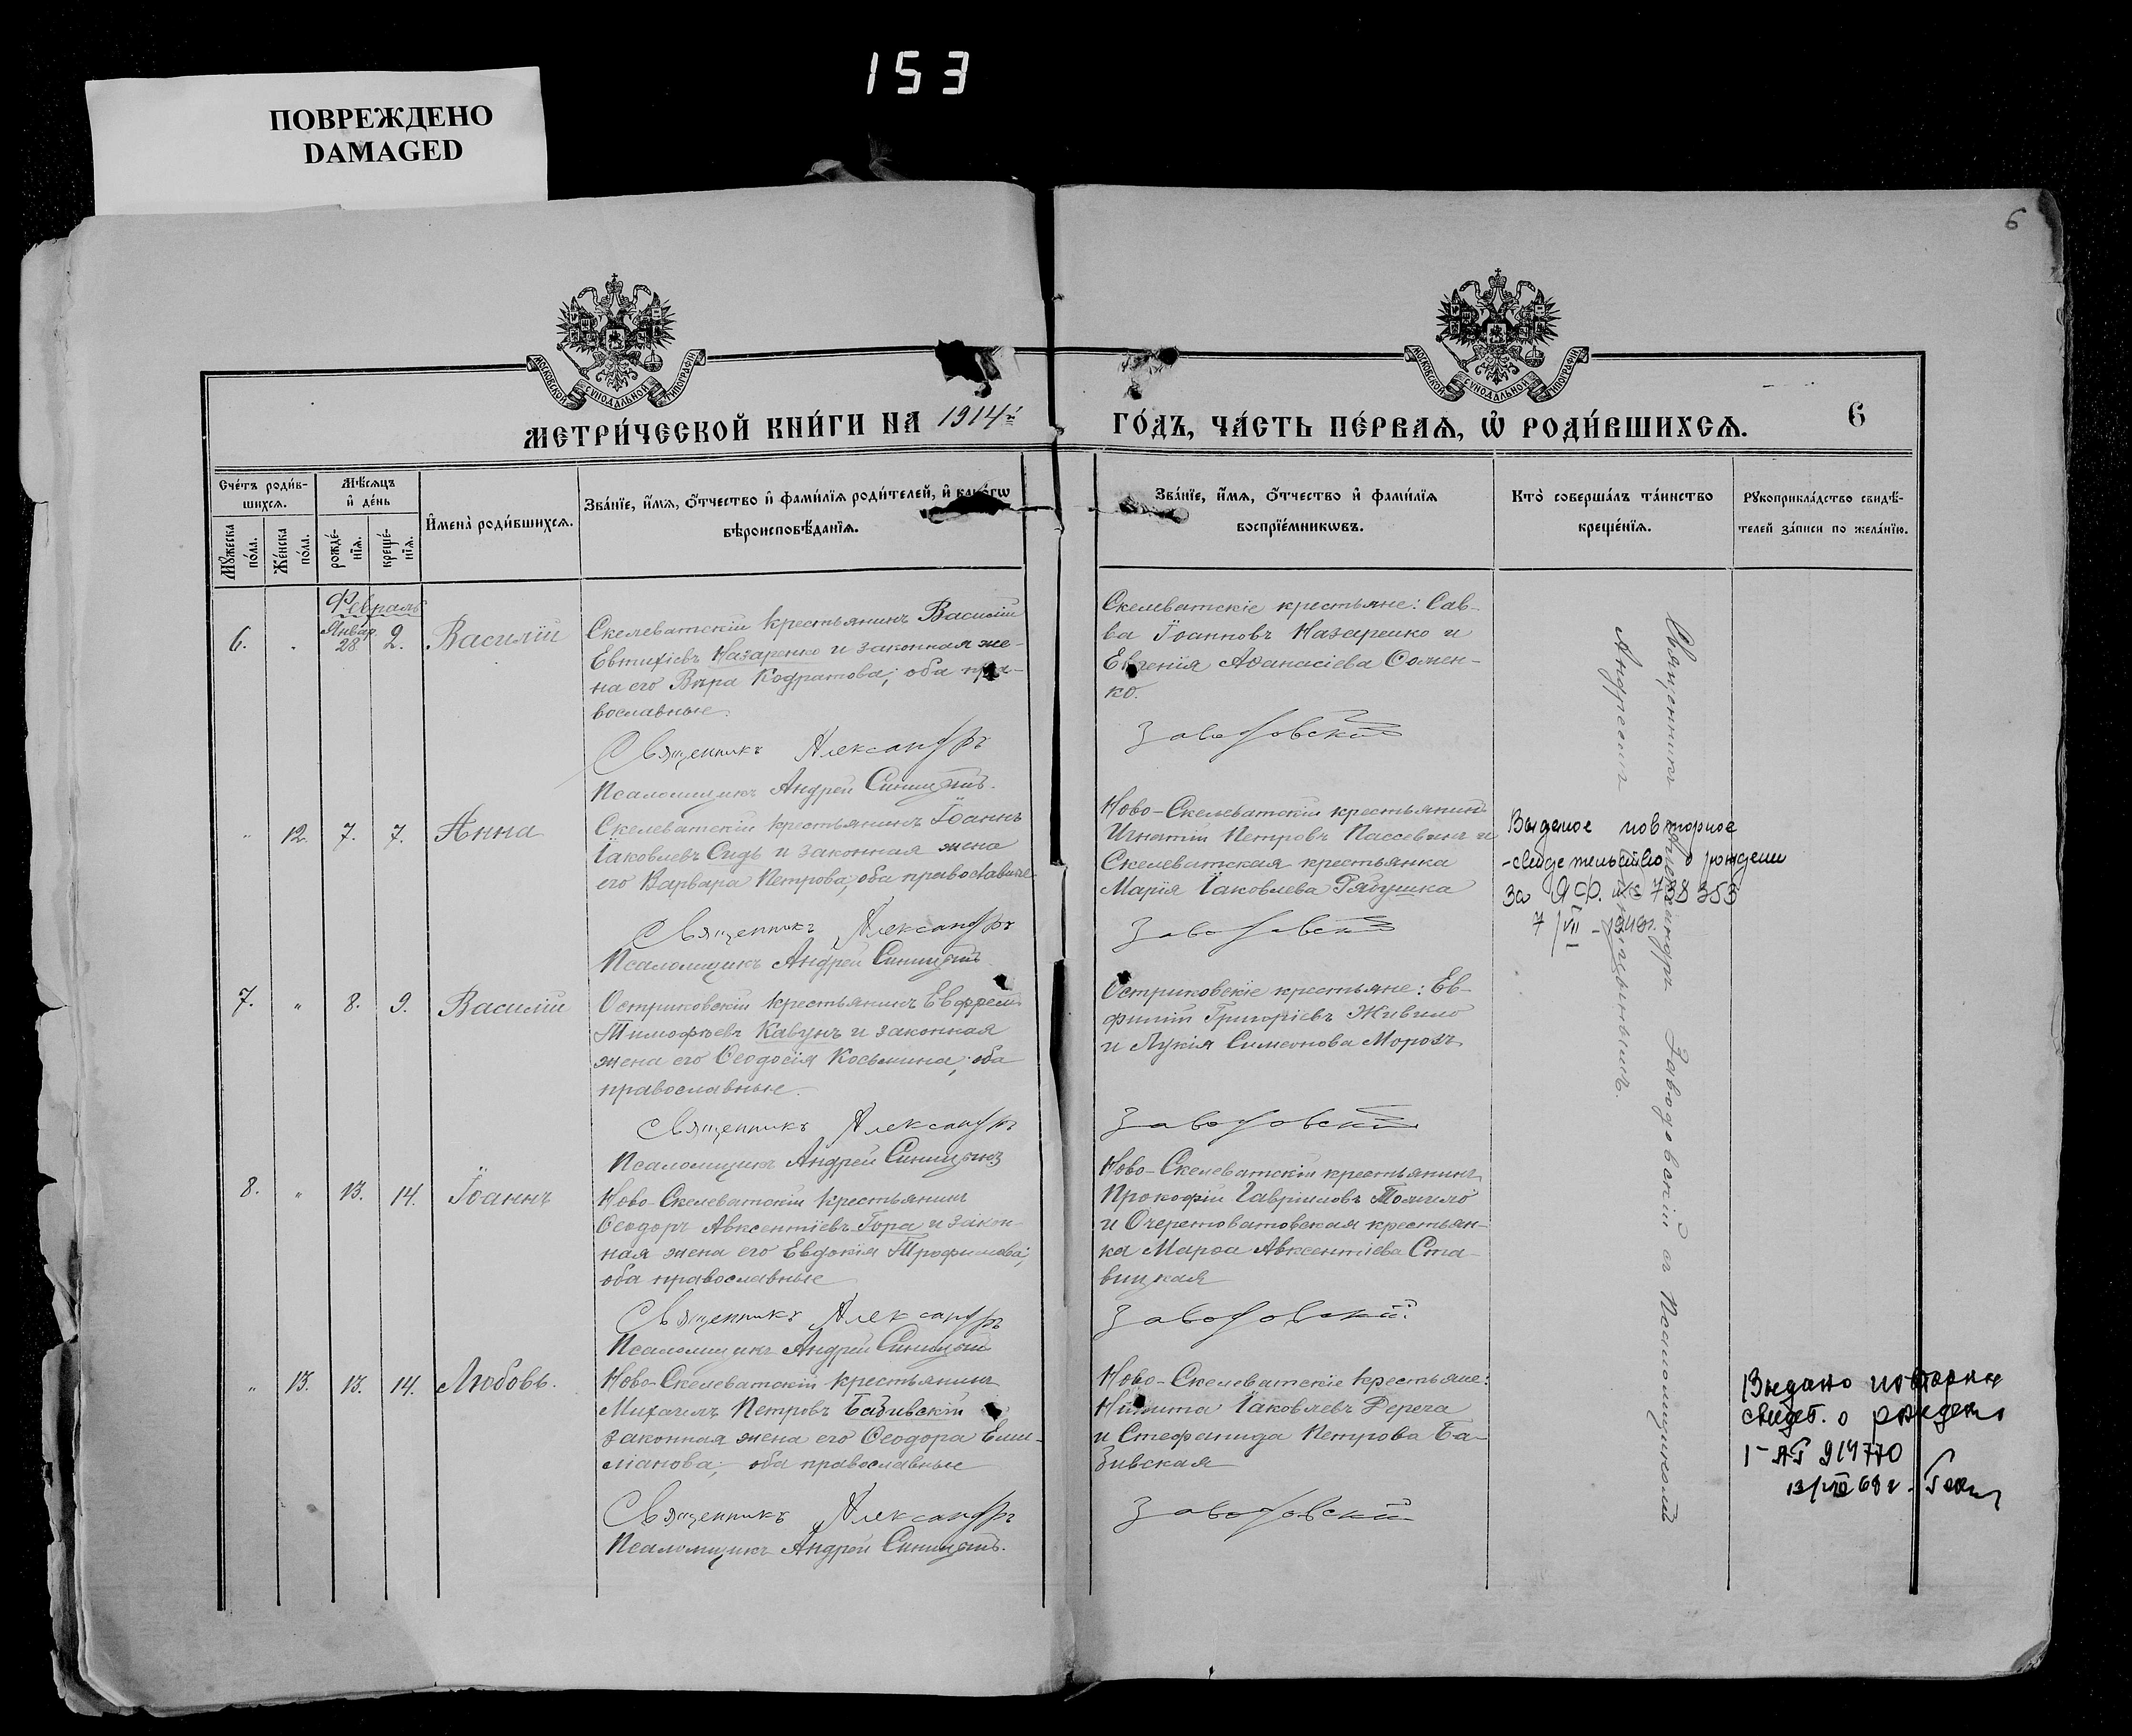 153
ПОВРЕЖДЕНО
DAMAGED
6
МОСКОВСКОЙ СѴНОДАЛЬНОЙ ТИПОГРАФІИ
МОСКОВСКОЙ СѴНОДАЛЬНОЙ ТИПОГРАФІИ
МЕТРИ́ЧЕСКОЙ КНИ́ГИ НА 1914й
ГО́ДЪ, ЧА́СТЬ ПЕ́РВАѦ, Ѡ҆ РОДИ́ВШИХСѦ.
6
Сче́тъ роди́в-
шихсѧ.
Мѣ́сѧцъ
и҆ де́нь
Мꙋ́жеска
по́ла.
Же́нска
по́ла.
рожде́-
нїѧ.
креще́-
нїѧ.
И҆мена̀ роди́вшихсѧ.
Зва́нїе, и҆́мѧ, ѻ҆́тчество и҆ фами́лїѧ роди́телей, и҆ како́гѡ
вѣроисповѣ́данїѧ.
Зва́нїе, и҆́мѧ, ѻ҆́тчество и҆ фами́лїѧ
воспрїе́мникѡвъ.
Кто̀ соверша́лъ та́инство
креще́нїѧ.
Рꙋкоприкла́дство свидѣ́-
телей за́писи по жела́нїю.
Февраль
6. " Январ. 28 2. Василій
Скелеватскій крестьянинъ Василій
Евтихіевъ Назаренко и законная же-
на его Вѣра Кодратова; оба пра-
вославные.
Священникъ Александръ
Псаломщикъ Андрей Синицынъ.
Скелеватскіе крестьяне: Сав-
ва Іоанновъ Назаренко и
Евгенія Аѳанасіева Сомен-
ко.
Заводовскій
" 12. 7. 7. Анна
Скелеватскій крестьянинъ Іоаннъ
Іаковлевъ Сидь и законная жена
его Варвара Петрова, оба православные
Священникъ Александръ
Псаломщикъ Андрей Синицынъ
Ново-Скелеватскій крестьянинъ
Игнатій Петровъ и
Скелеватская крестьянка
Марія Іаковлева Рябушка
Заводовскій
Выданое повторное
свидетельство о рождении
за ЯФ. № 738353
7/VII - 1949г.
7. " 8. 9. Василій
Остриковскій крестьянинъ Евфрем
Тимофѣевъ Кавунъ и законная
жена его Ѳеодосія Косьмина; оба
православные.
Священникъ Александръ
Псаломщикъ Андрей Синицынъ
Остриковскіе крестьяне: Ев-
фимій Григоріевъ Живило
и Лукія Симеонова Морозъ
Заводовскій
8. " 13. 14. Іоаннъ
Ново-Скелеватскій крестьянинъ
Ѳеодоръ Авксентіевъ Гора и закон-
ная жена его Евдокія Трофимова;
оба православные
Священникъ Александръ
Псаломщикъ Андрей Синицынъ
Ново-Скелеватскій крестьянинъ
Прокофій Гавріиловъ Томило
и Очеретоватовская крестьян-
ка Марѳа Авксентіева Ста-
вицкая
Заводовскій.
" 13. 13. 14. Любовь.
Ново-Скелеватскій крестьянинъ
Михаилъ Петровъ Бабивскій
законная жена его Ѳеодора Еми-
ліанова; оба православные
Священникъ Александръ
Псаломщикъ Андрей Синицынъ.
Ново-Скелеватскіе крестьяне:
Никита Іаковлевъ Дереча
и Стефанида Петрова Ба-
бивская
Заводовскій
Священникъ Александръ Заводовскій съ Псаломщикомъ
Андреемъ Синицынымъ.
Выдано повторне
свидет. о рожден.
I-АГ 914770
13/VIII 68 г.